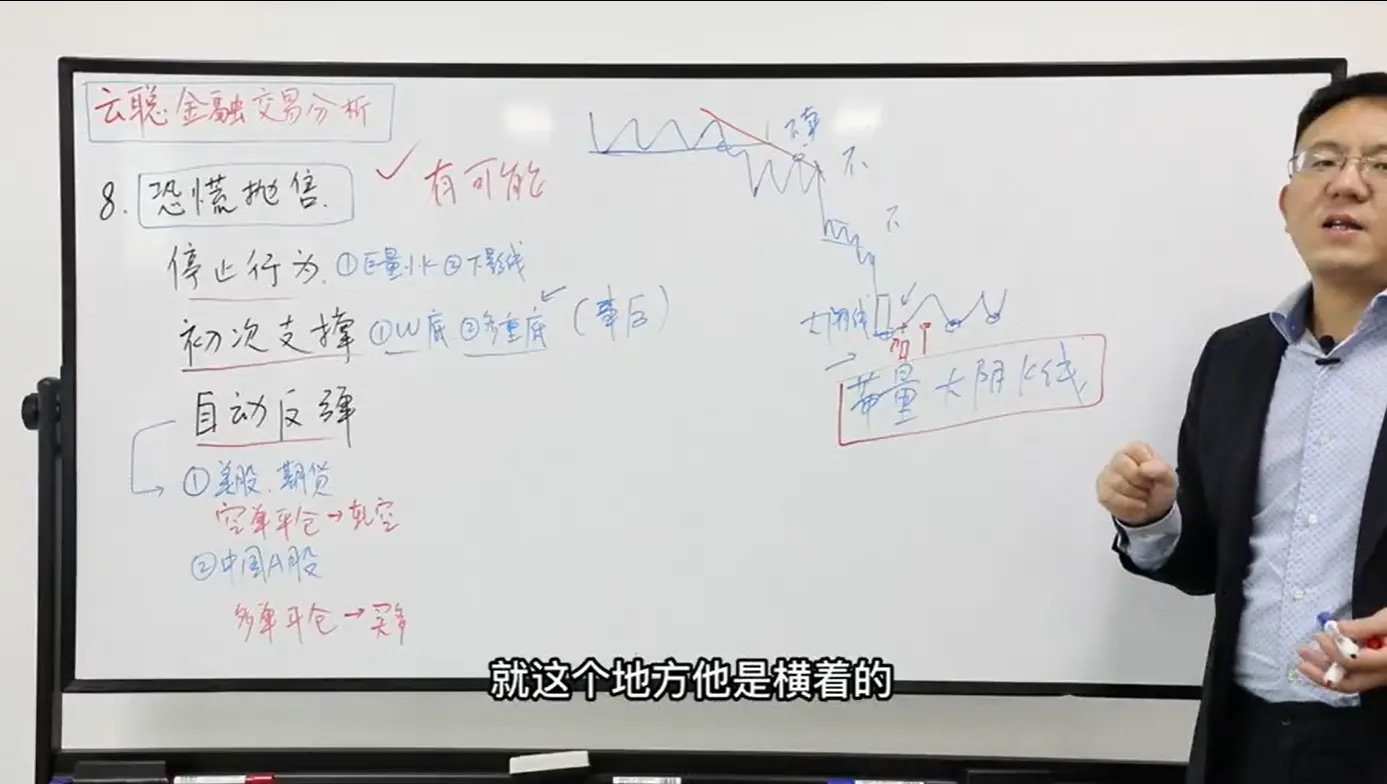 云聪金融交易分析
8. 恐慌抛售. ✓ 有可能
停止行为. ①巨量小K ②下影线
初次支撑 ①W底 ②多重底 (幸后)
自动反弹
①美股、期货
空单平仓→轧空
②中国A股
多单平仓→买多
不算
不
不
大阴线
带量大阴K线
就这个地方他是横着的